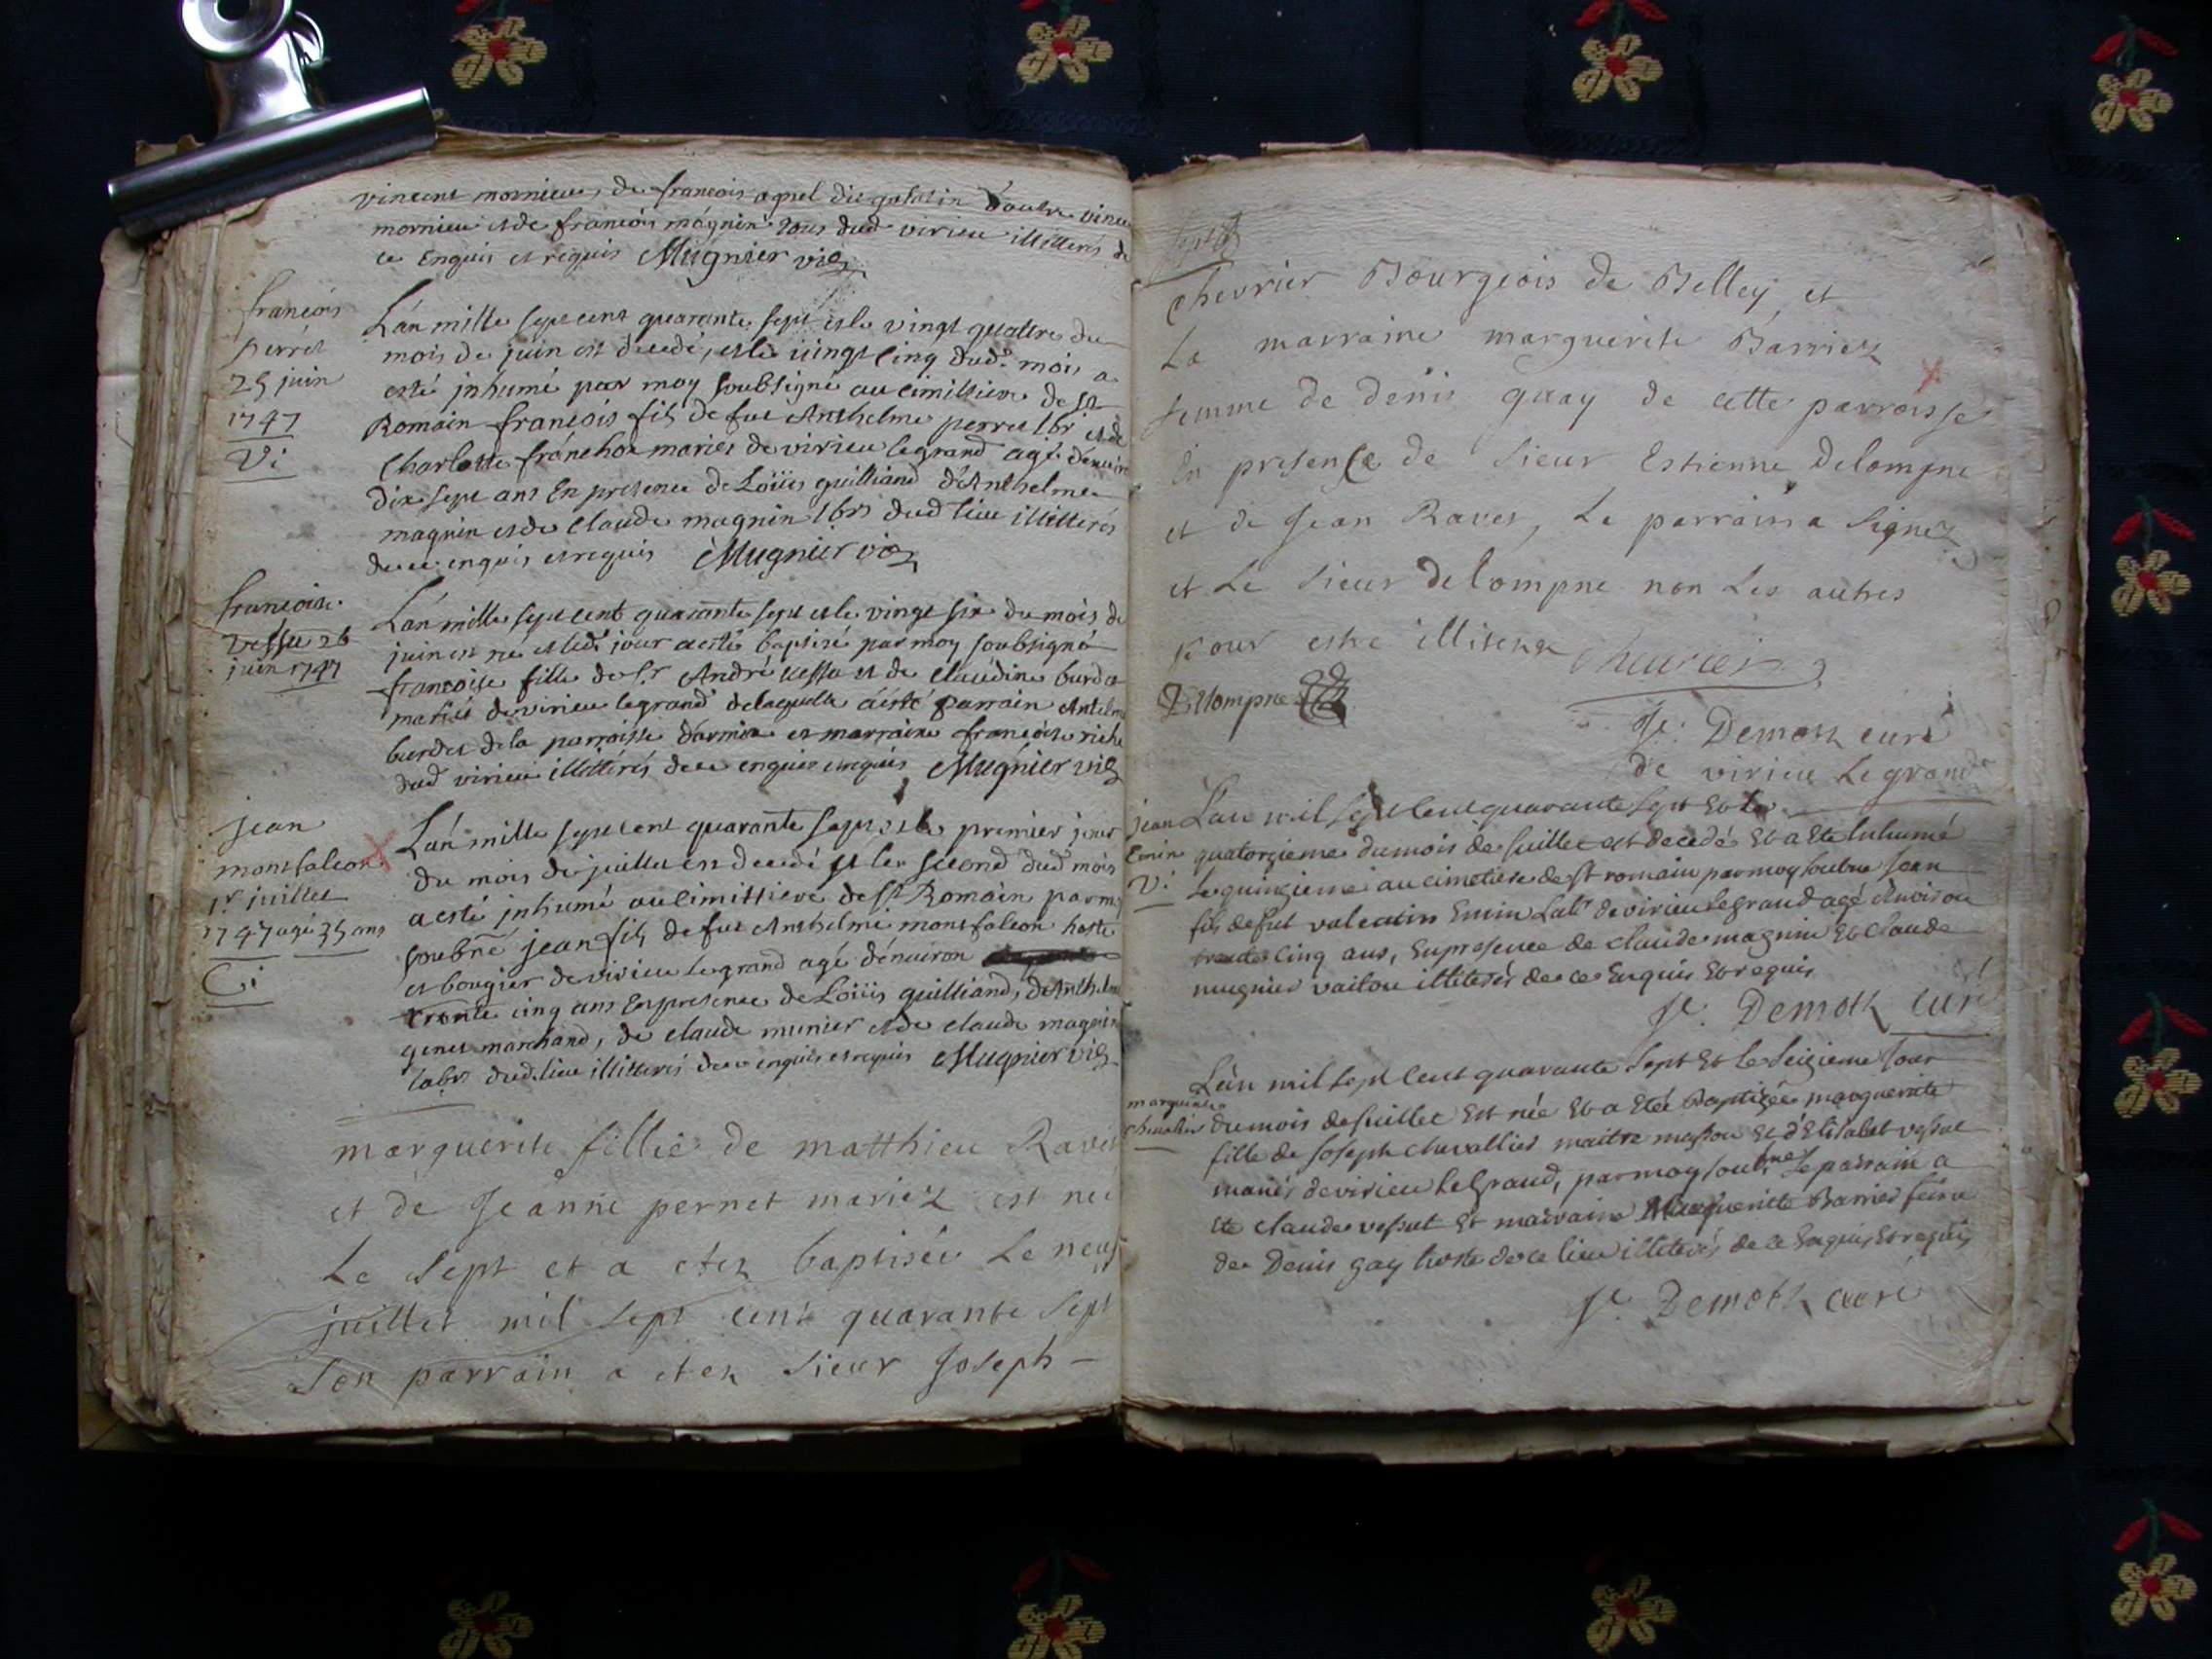 vincent mornieu, de francois apvel dit galatin d'autre vince
mornieu et de francois magnin tous dud virieu illitterés de
ce enquis et requis Mugnier vic
francois
perret
25 juin
1747
Vi
L'an mille sept cent quarante sept et le vingt quattre du
mois de juin est decedé, et le vingt cinq dud. mois a
esté inhumé par moy soubsigné au cimittiere de St
Romain francois fils de fut Anthelme perret lbr et de
Charlotte franchot mariés de virieu legrand agé d'enviro
dix sept ans En presence de Loüis guilliand d'Anthelme
magnin et de Claude magnin lbrs dud lieu illitterés
de ce enquis et requis Mugnier vic
francoise
Vessu 26
juin 1747
L'an mille sept cent quarante sept et le vingt six du mois de
juin est née et led. jour a esté baptisé par moy soubsigné
francoise fille de Sr André vessu et de claudine burdet
mariés de virieu legrand de laquelle a esté parrain Antelme
burdet de la parroisse d'armix et marraine francoise riche
dud virieu illitterés de ce enquis et requis Mugnier vic
jean
montfalcon
1r juillet
1747 agé 35 ans
Ci
L'an mille sept cent quarante sept et le premier jour
du mois de juillet est decedé et le second dud mois
a esté inhumé au cimittiere de St Romain par moy
soubné jean fils de fut Anthelme montfalcon hoste
et bougier de virieu legrand agé d'enuiron
trente cinq ans En presence de Loüis guilliand, d'Anthelme
genet marchand, de claude munier et de claude magnin
labrs dud lieu illitterés de ce enquis et requis Mugnier vic
marguerite fillie de matthieu Ravet
et de Jeanne pernet mariez est née
Le sept et a etez baptisée Le neuf
juillet mil sept cent quarante sept
Son parrain a etez sieur Joseph –
chevrier Bourgeois de Belley et
La marraine marguerite Barriez
femme de denis guay de cette parroisse
En presence de sieur Estienne Delompne
et de Jean Ravet, Le parrain a signez
et Le sieur delompne non Les autres
pour estre illiterez Chevrier
Delompne
Je. Demoz curé
de virieu Legrand
jean
Emin
Vi
L'an mil sept cent quarante sept Et le
quatorzieme du mois de Juillet est decedé Et a Ete Inhumé
le quinzieme au cimetiere de St romain par moy soubne Jean
fils de fut valentin Emin Labr de virieu legrand agé d'Environ
trente cinq ans, En presence de claude magnin Et Claude
mugnier vaitou illiterés de ce Enquis Et requis
Je. Demoz curé
marguerite
chevalier
L'an mil sept cent quarante sept Et le seizieme Jour
du mois de Juillet Est née Et a Eté Baptizée marguerite
fille de Joseph chevallier maitre masson Et d'Elisabet vessut
mariés de virieu le Grand, par moy soubne, Le parrain a
ete claude vessut Et marraine Marguerite Barrier feme
de Denis gay hoste de ce lieu illiterés de ce Enquis Et requis
Je. Demoz curé